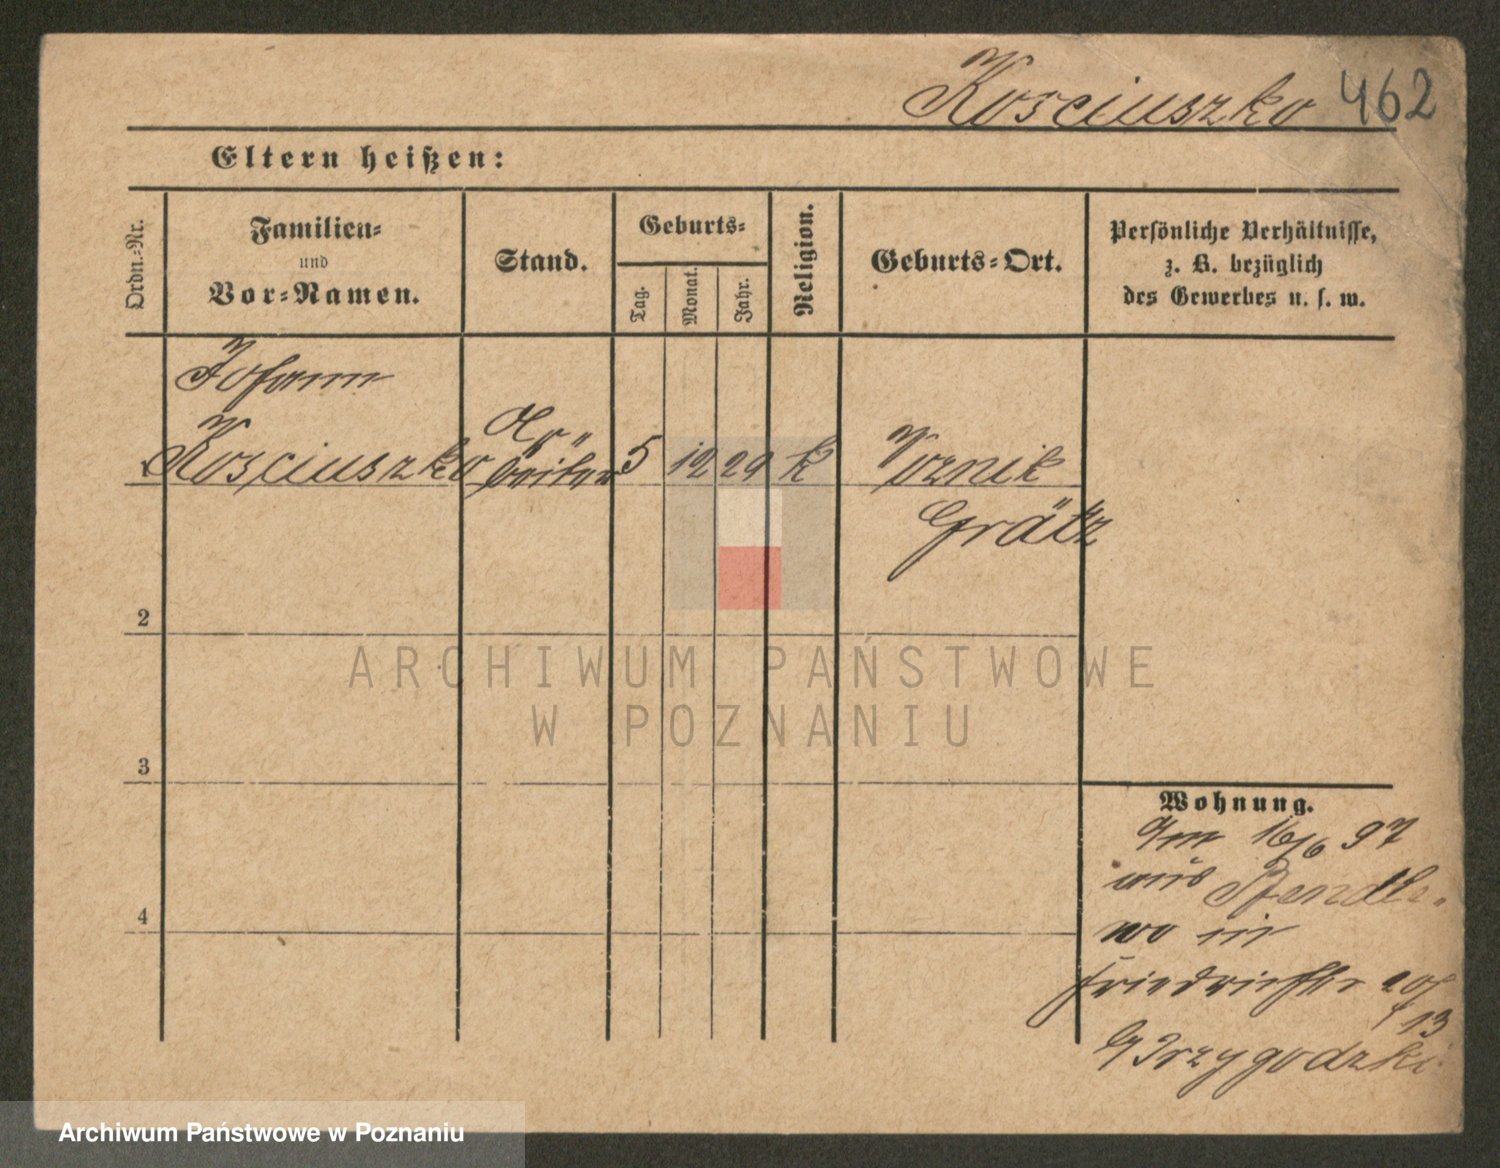 Kosciuszko 462
Eltern heißen:
Ordn.-Nr.
Familien- und Vor-Namen.
Stand.
Geburts-
Tag.
Monat.
Jahr.
Religion.
Geburts-Ort.
Persönliche Verhältnisse,
z. B. bezüglich
des Gewerbes u. s. w.
Johann
1 Kosciuszko Ar-
beiter 5 12 29 k Woznik
Grätz
2
3
4
Wohnung.
Am 16/6 97
aus
wo in
Friedrichstr
13
Przygodzki
ARCHIWUM PAŃSTWOWE
W POZNANIU
Archiwum Państwowe w Poznaniu